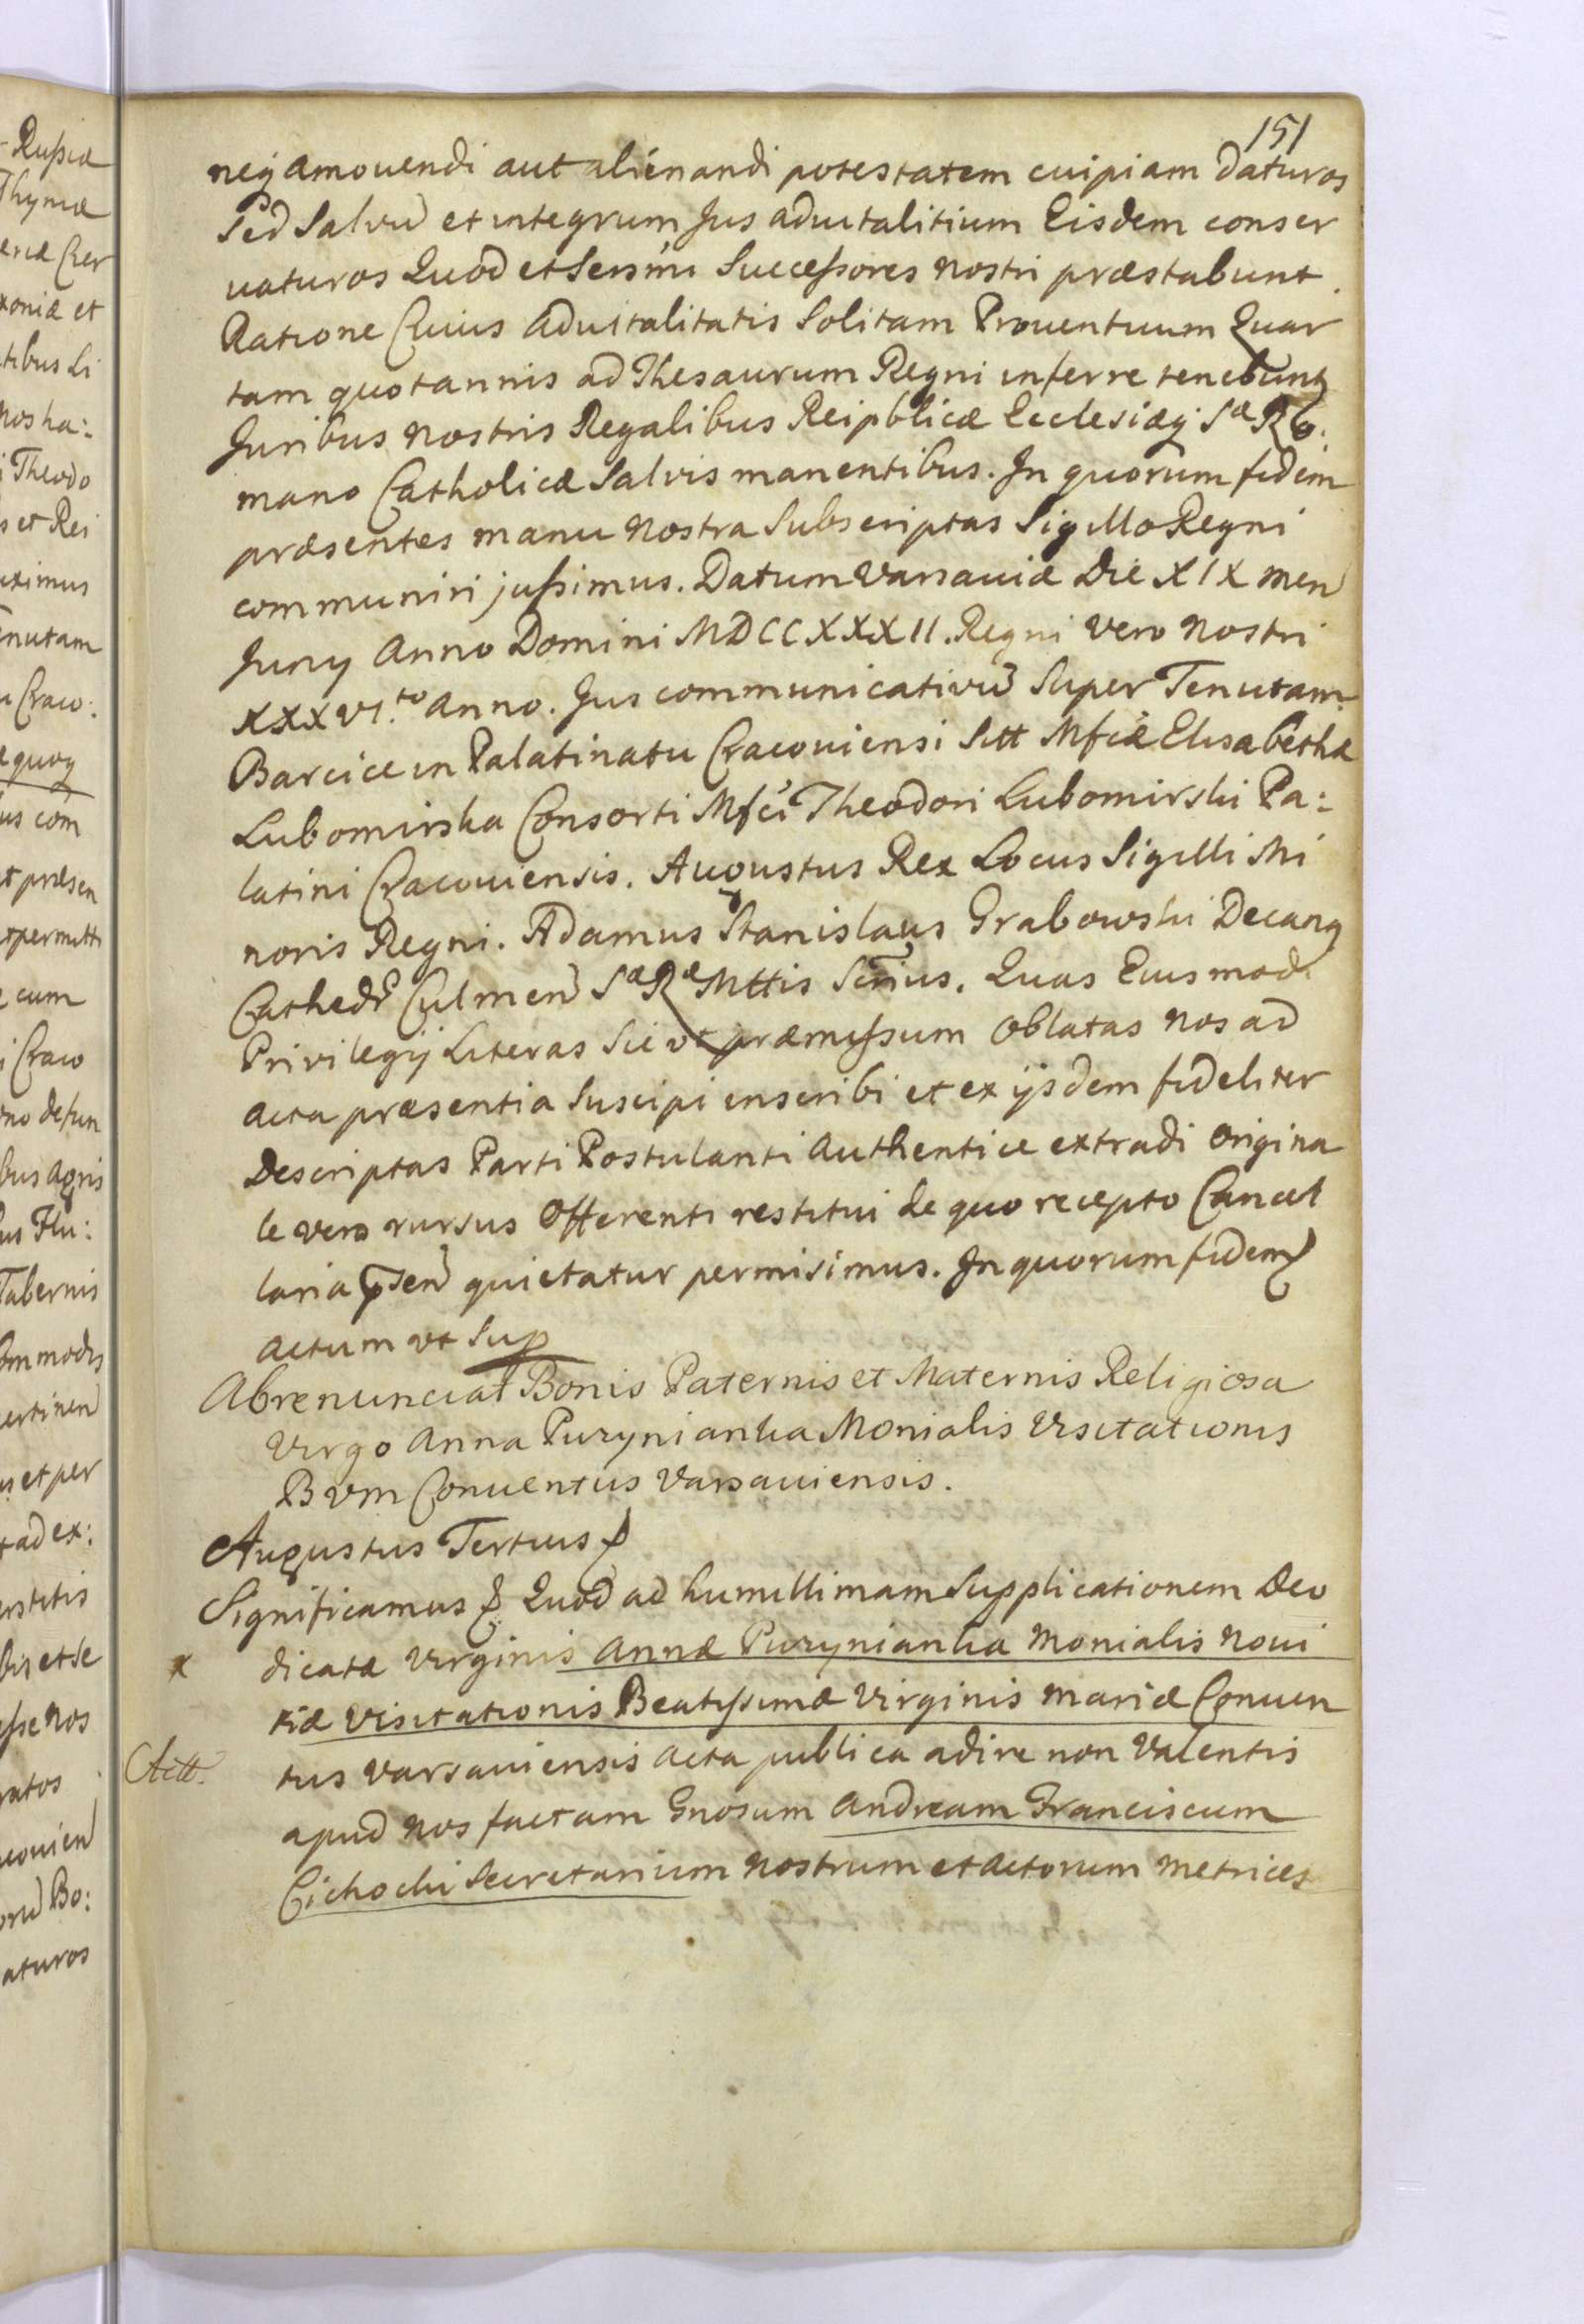 151
neq amovendi aut alienandi potestatem cuipiam daturos
Sed Salvū et integrum Jus advitalitium Eisdem conser
vaturos Quod et Sersm̄i Successores nostri præstabunt.
Ratione Cuius advitalitatis Solitam Proventuum Quar
tam quotannis ad Thesaurum Regni inferre tenebunt
Juribus nostris Regalibus Reipblicæ Ecclesiæq Sæ Ro
mano Catholicæ Salvis manentibus. In quorum fidem
præsentes manu nostra Subscriptas Sigillo Regni
communiri jussimus. Datum Varsaviæ Die XIX men
Juny Anno Domini MDCCXXXII. Regni vero nostri
XXXVI.to anno. Jus communicativū Super Tenutam
Barcice in Palatinatu Cracoviensi Mfcæ Elisabethæ
Lubomirska Consorti Mfci Theodori Lubomirski Pa:
latini Cracoviensis. Augustus Rex Locus Sigilli Mi
noris Regni. Adamus Stanislaus Grabowski Decanq
Cathedr Culmen Sæ Ræ Mttis Srius. Quas Eiusmodi
Privilegij Literas Sic ut præmissum Oblatas nos ad
acta præsentia Suscipi inscribi et ex ijsdem fideliter
Descriptas Parti Postulanti Authentice extradi Origina
le vero rursus Offerenti restitui de quo recepto Cancel
laria psen quietatur permisimus. In quorum fidem
actum ut Sup
Abrenunciat Bonis Paternis et Maternis Religiosa
Virgo Anna Puzynianka Monialis Visitationis
BVM Conventus Varsaviensis.
Augustus Tertius
Significamus Quod ad humillimam Supplicationem Deo
x dicatæ Virginis Annæ Puzynianka Monialis Novi
tiæ Visitationis Beatissimæ Virginis Mariæ Conven
tus Varsaviensis acta publica adire non Valentis
apud nos factam Gnosum Andream Franciscum
Cichocki Secretarium nostrum et actorum Metrices